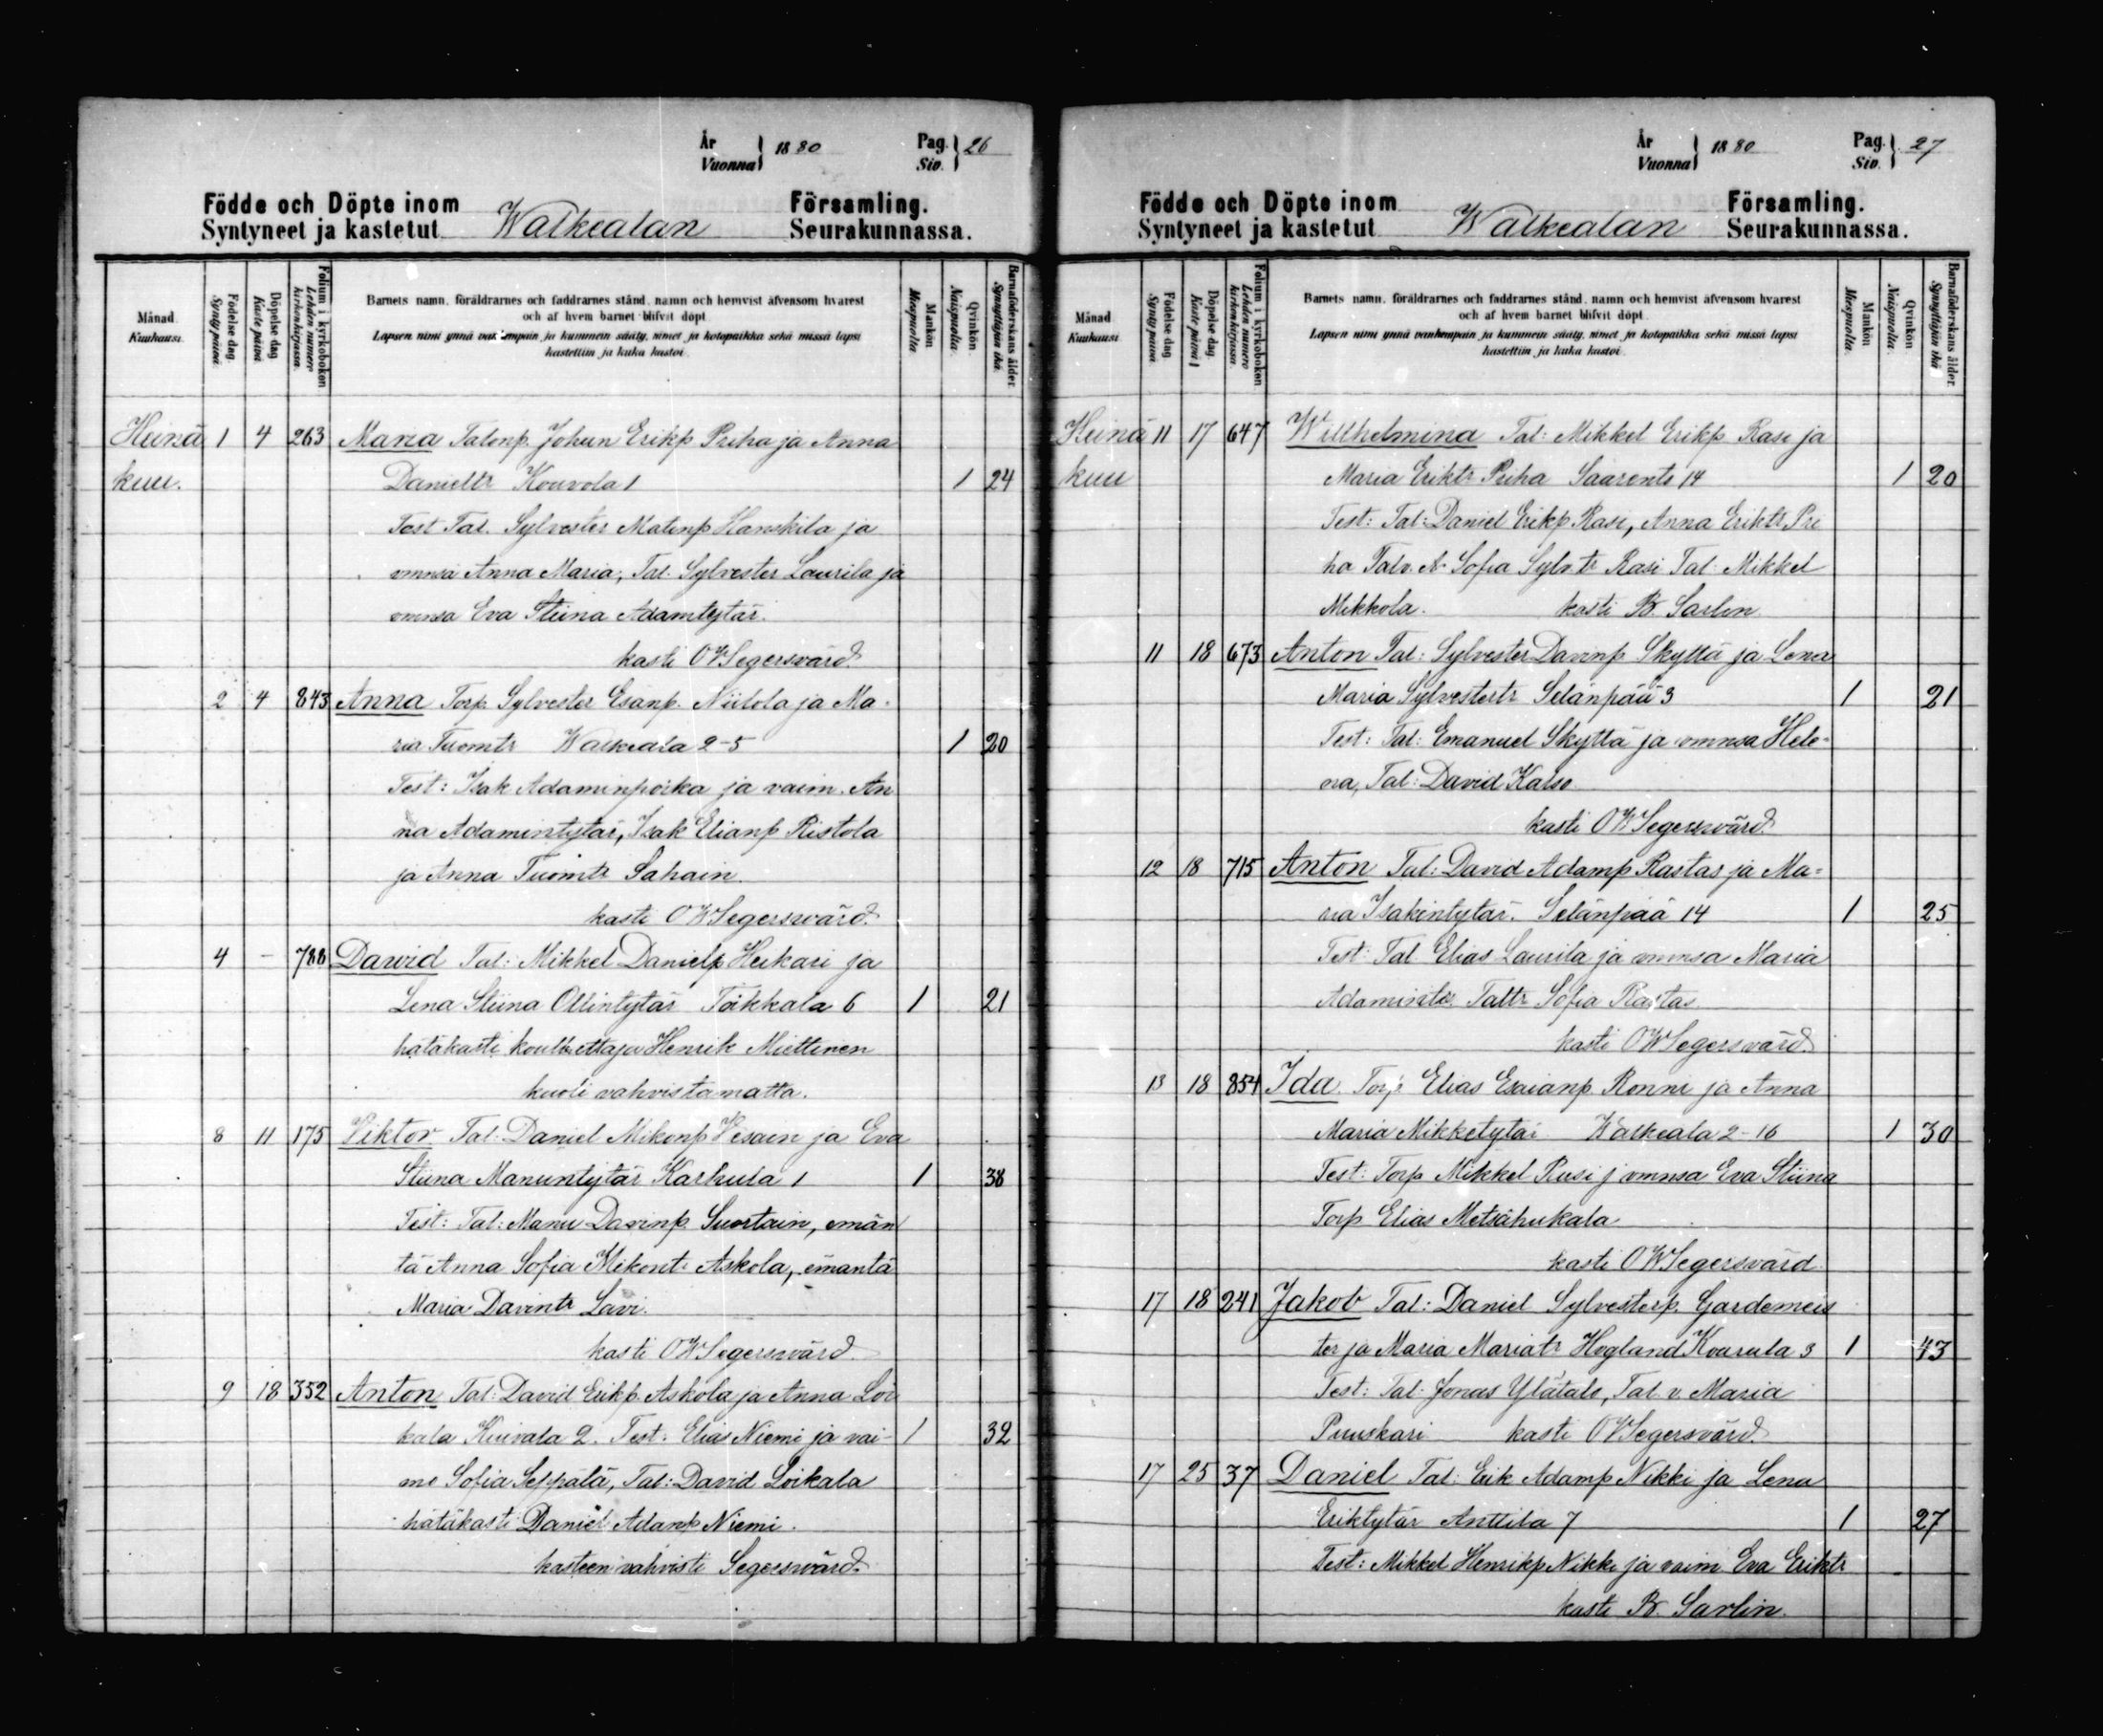 År
Vuonna } 1880 Pag.
Siv. } 26
Födde och Döpte inom Församling.
Syntyneet ja kastetut Walkealan Seurakunnassa.
Månad.
Kuukausi.
Födelse dag.
Synty päivä.
Döpelse dag
Kaste päivä.
Folium i kyrkoboken
Lehden numero
kirkonkirjassa.
Barnets namn, föräldrarnes och faddrarnes stånd, namn och hemvist äfvensom hvarest
och af hvem barnet blifvit döpt.
Lapsen nimi ynnä vanhempain ja kummein sääty, nimet ja kotopaikka sekä missä lapsi
kastettiin ja kuka kastoi.
Mankön
Miespuolta.
Qvinkön
Naispuolta.
Barnaföderskans ålder.
Synnyttäjän ikä.
Heinä 1 4 263 Maria Talonp. Johan Erikp Priha ja Anna
kuu. Danieltr Kouvola 1 1 24
Test Tal. Sylvester Matinp Hanskila ja
vmnsa Anna Maria, Tal. Sylvester Laurila ja
vmnsa Eva Stiina Adamtytär.
kasti OWSegersvärd
2 4 843 Anna Torp. Sylvester Esanp. Niilola ja Ma-
ria Tuomtr Walkeala 2-5 1 20
Test: Isak Adaminpoika ja vaim. An
na Adamintytär, Isak Elianp Ristola
ja Anna Tuomtr Sahain.
kasti OWSegersvärd.
4 – 788 David Tal: Mikkel Danielp Heikari ja
Lena Stiina Ollintytär Toikkala 6 1 21
hätäkasti koulLettaja Henrik Miettinen
kuoli vahvistamatta.
8 11 175 Viktor Tal: Daniel Mikonp Vesain ja Eva
Stiina Manuntytär Karhula 1 1 38
Test: Tal: Manu Davinp Suortain, emän
tä Anna Sofia Mikontr Askola, emäntä
Maria Davintr Lavi.
kasti OWSegersvärd.
9 18 352 Anton Tal: David Erikp. Askola ja Anna Loi
kala Kuivala 2. Test: Elias Niemi ja vai- 1 32
mo Sofia Seppälä, Tal: David Loikala
hätäkasti Daniel Adamp Niemi.
kasteen vahvisti Segersvärd.
År
Vuonna } 1880 Pag.
Siv. } 27
Födde och Döpte inom Församling.
Syntyneet ja kastetut Walkealan Seurakunnassa.
Månad.
Kuukausi.
Födelse dag
Synty päivä.
Döpelse dag
Kaste päivä
Folium i kyrkoboken
Lehden numero
kirkonkirjassa.
Barnets namn, föräldrarnes och faddrarnes stånd, namn och hemvist äfvensom hvarest
och af hvem barnet blifvit döpt.
Lapsen nimi ynnä vanhempain ja kummein sääty, nimet ja kotopaikka sekä missä lapsi
kastettiin ja kuka kastoi.
Mankön
Miespuolta.
Qvinkön
Naispuolta.
Barnaföderskans ålder.
Synnyttäjän ikä
Heinä 11 17 647 Willhelmina Tal: Mikkel Erikp Rasi ja
kuu Maria Eriktr Priha Saarento 14 1 20
Test: Tal: Daniel Erikp Rasi, Anna Eriktr Pri
ha Talv. N. Sofia Sylv.tr Rasi Tal: Mikkel
Mikkola. kasti B. Sarlin
11 18 673 Anton Tal: Sylvester Davinp Skyttä ja Lena
Maria Sylvestertr Selänpää 3 1 21
Test: Tal: Emanuel Skyttä ja vmnsa Hele-
na, Tal: David Katso.
kasti OWSegersvärd.
12 18 715 Anton Tal: David Adamp Rastas ja Ma-
ria Isakintytär. Selänpää 14 1 25
Test: Tal Elias Laurila ja vmnsa Maria
Adamintr Taltr Sofia Rastas
kasti OWSegersvärd.
13 18 854 Ida. Torp Elias Esaianp Ronni ja Anna
Maria Mikkeltytär Walkeala 2-16 1 30
Test: Torp Mikkel Rusi j vmnsa Eva Stiina
Torp Elias Metsähukala
kasti OWSegersvärd
17 18 241 Jakob Tal: Daniel Sylvesterp. Gardemeis
ter ja Maria Mariatr Hogland Kourula 3 1 43
Test: Tal: Jonas Ylätalo, Tal. v. Maria
Puuskari kasti OWSegersvärd.
17 25 37 Daniel Tal: Erik Adamp Nikki ja Lena
Eriktytär Anttila 7 1 27
Test: Mikkel Henrikp Nikki ja vaim Eva Eriktr
kasti B. Sarlin.